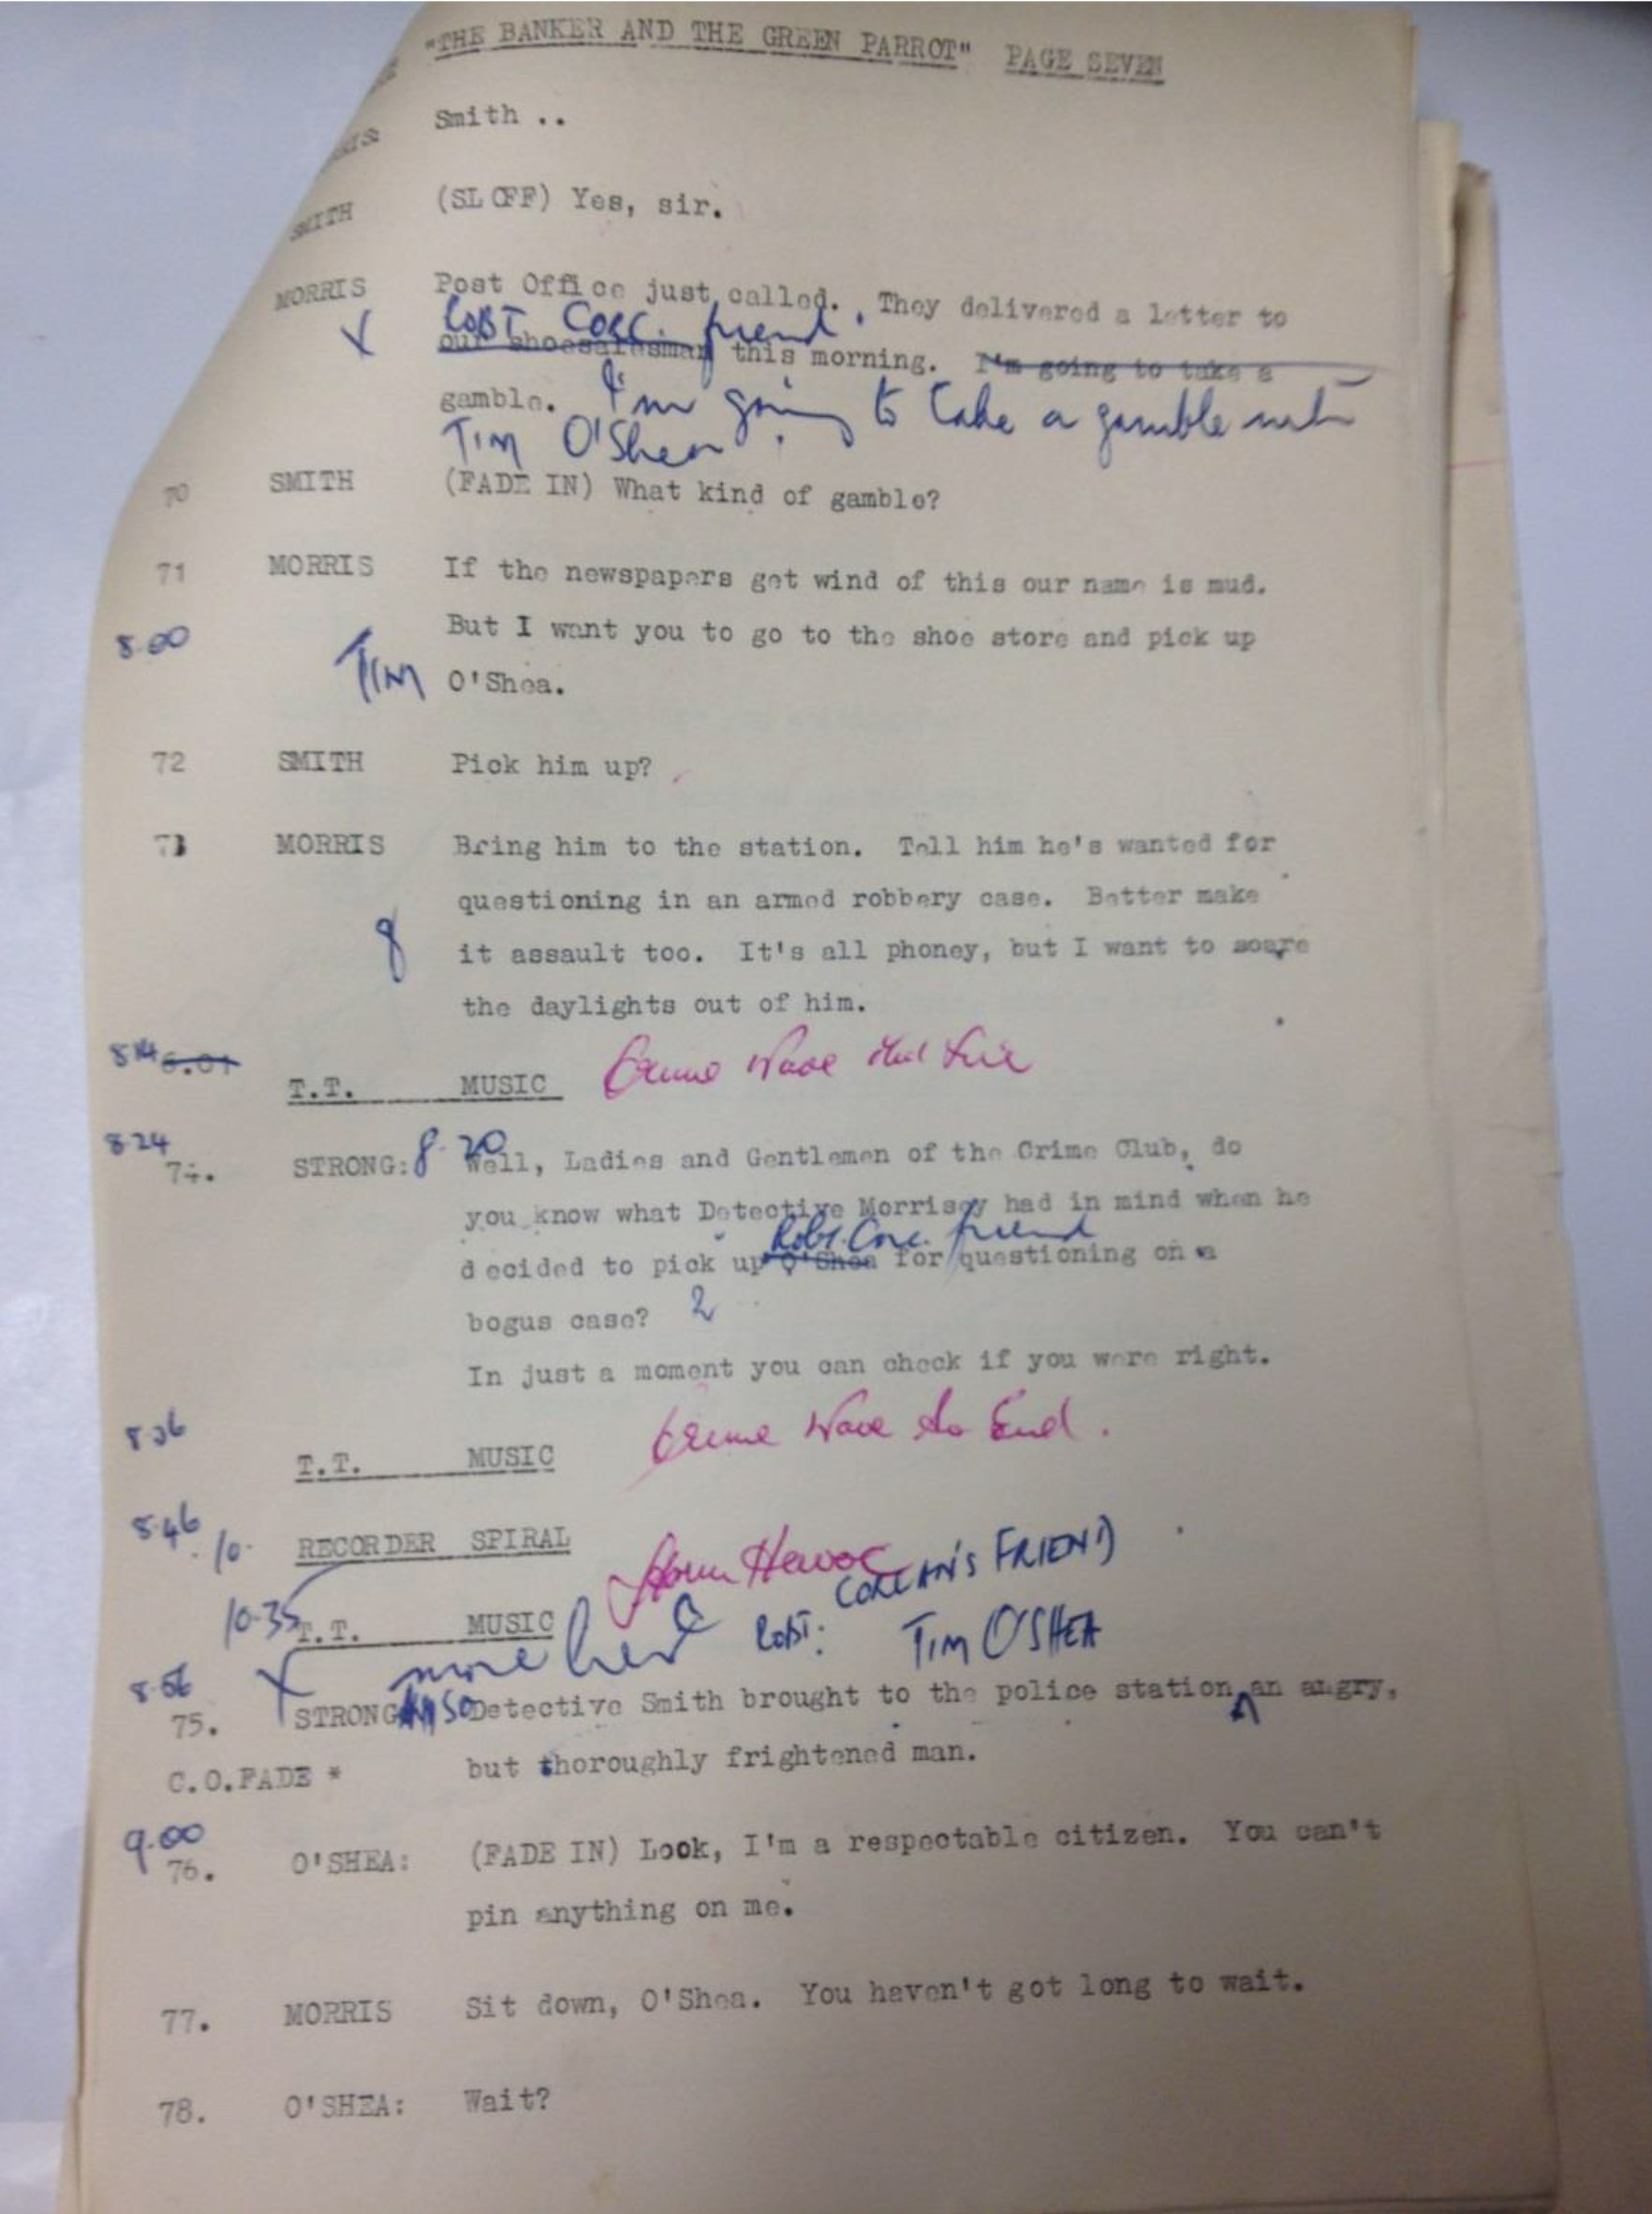 "THE BANKER AND THE GREEN PARROT" PAGE SEVEN
Smith ..
SMITH (SL OFF) Yes, sir.
MORRIS Post Office just called. They delivered a letter to
ROBT. CORC. friend
our shoesalesman this morning. I'm going to take a
gamble. I'm going to take a gamble
TIM O'Shea.
70 SMITH (FADE IN) What kind of gamble?
71 MORRIS If the newspapers get wind of this our name is mud.
8.00 But I want you to go to the shoe store and pick up
TIM O'Shea.
72 SMITH Pick him up?
73 MORRIS Bring him to the station. Tell him he's wanted for
questioning in an armed robbery case. Better make
8 it assault too. It's all phoney, but I want to scare
the daylights out of him.
8.14 8.01
T.T. MUSIC Crime Wave
8.24
74. STRONG: 8.20 Well, Ladies and Gentlemen of the Crime Club, do
you know what Detective Morrisey had in mind when he
Robt. Corc. friend
decided to pick up O'Shea for questioning on a
bogus case? 2
In just a moment you can check if you were right.
8.36
T.T. MUSIC Crime Wave to End.
8.46 10. RECORDER SPIRAL
Havoc CORCORAN'S FRIEND
10.35 T.T. MUSIC
ROBT: TIM O'SHEA
8.56
75. STRONG SO Detective Smith brought to the police station an angry,
C.O.FADE * but thoroughly frightened man.
9.00
76. O'SHEA: (FADE IN) Look, I'm a respectable citizen. You can't
pin anything on me.
77. MORRIS Sit down, O'Shea. You haven't got long to wait.
78. O'SHEA: Wait?